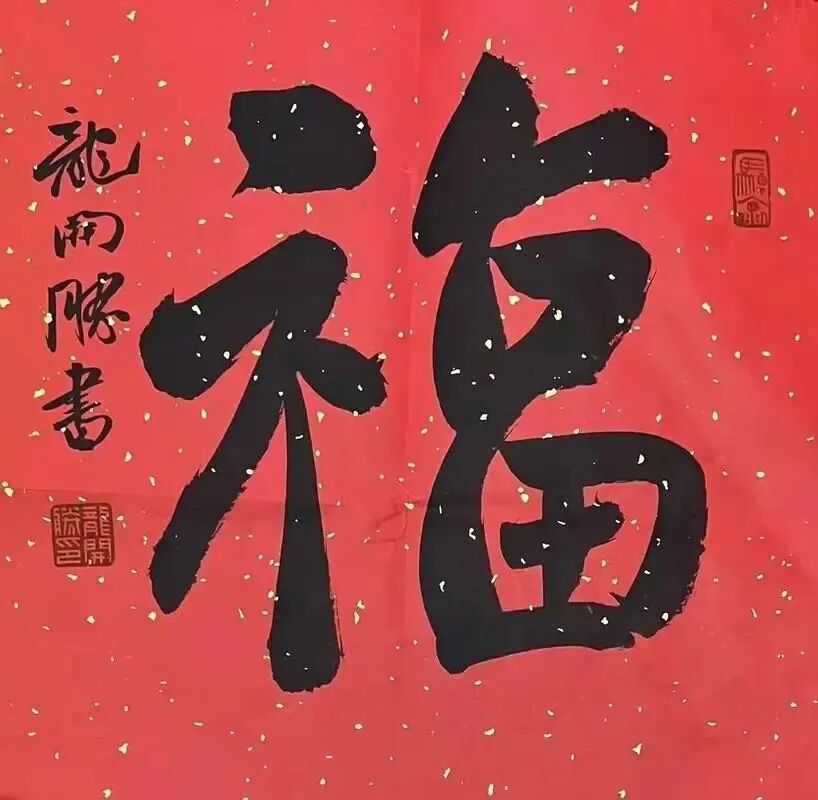 福
龍開勝書
龍開勝印